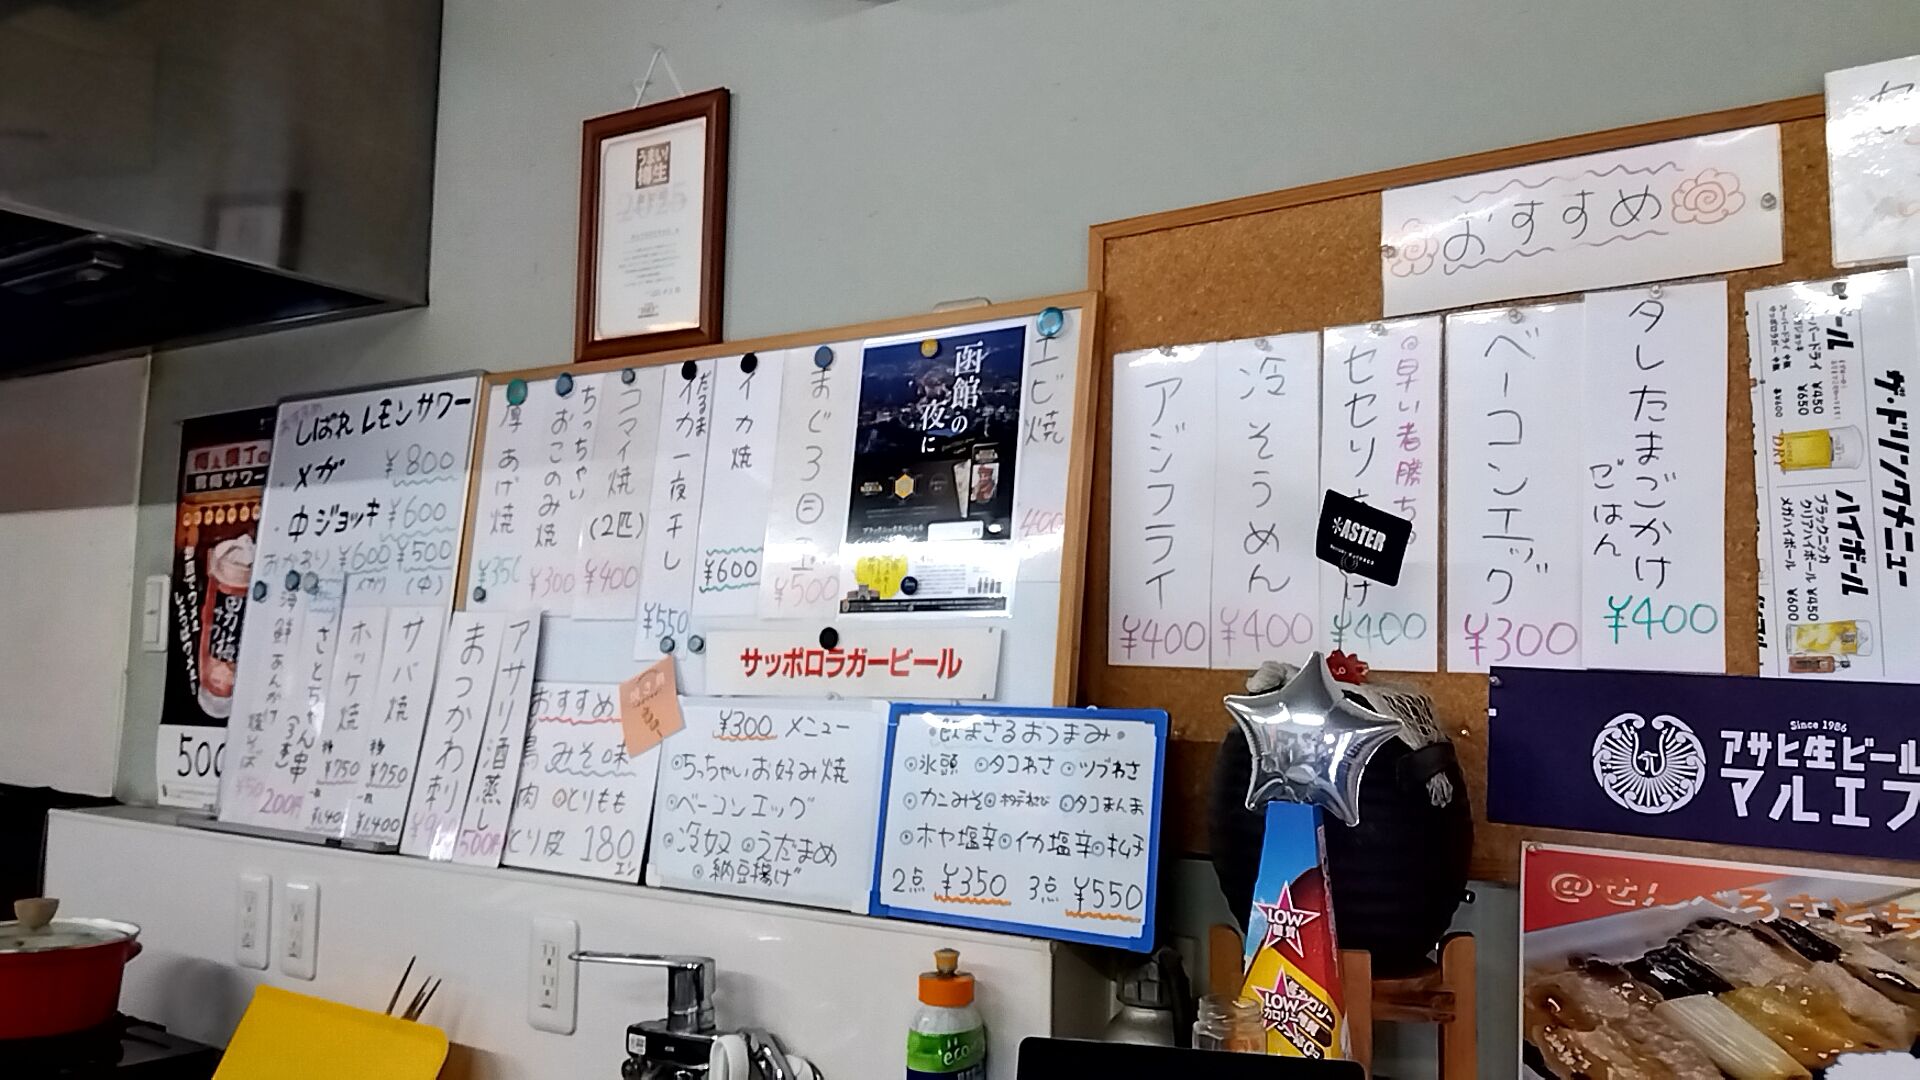 うまい!
樽生
2025
しばれ レモンサワー
・メガ ¥800
・中ジョッキ ¥600
おかわり ¥600 ¥500
(メガ) (中)
500
厚あげ焼
ちっちゃい
おこのみ焼
¥300
コマイ焼
(2匹)
¥400
だるま
イカ一夜干し
¥550
イカ焼
¥600
まぐろ
¥500
函館の
夜に
エビ焼
400
サッポロラガービール
海鮮あんかけ
焼そば
さとちゃん串
(3本)
200円
ホッケ焼
¥750
¥1,400
サバ焼
¥750
¥1,400
まつかわ刺し
アサリ酒蒸し
500円
おすすめ
みそ味
とりもも
とり皮 180
エン
¥300 メニュー
◎ちっちゃいお好み焼
◎ベーコンエッグ
◎冷奴 ◎えだまめ
◎納豆揚げ
・飲まさるおつまみ・
◎氷頭 ◎タコわさ ◎ツブわさ
◎カニみそ ◎ホタテわさび ◎タコまんま
◎ホヤ塩辛 ◎イカ塩辛 ◎キムチ
2点 ¥350 3点 ¥550
おすすめ
アジフライ
¥400
冷そうめん
¥400
◎早い者勝ち
セセリ
け
¥400
ベーコンエッグ
¥300
夕したまごかけ
ごはん
¥400
*ASTER
ザ・ドリンクメニュー
ハイボール
ブラックニッカ
クリアハイボール ¥450
メガハイボール ¥600
Since 1986
アサヒ生ビール
マルエフ
LOW
糖質
LOW
カロリー
@せ!んべろさとち